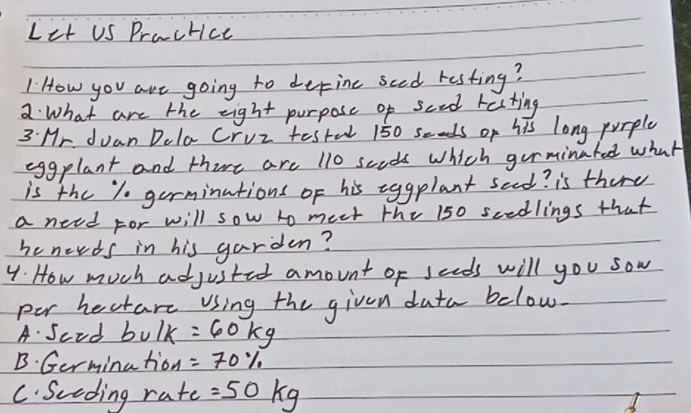 Let US Practice
1. How you are going to define seed testing?
2. What are the eight purpose of seed testing
3. Mr. Juan Dela Cruz tested 150 seeds of his long purple
eggplant and there are 110 seeds which germinated what
is the % germinations of his eggplant seed? is there
a need for will sow to meet the 150 seedlings that
he needs in his garden?
4. How much adjusted amount of seeds will you sow
per hectare using the given data below.
A. Seed bulk = 60 kg
B. Germination = 70%
C. Seeding rate = 50 kg